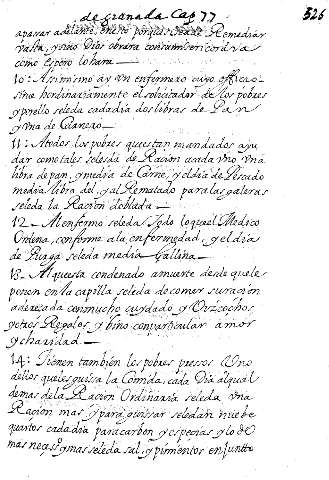 de granada Cap 77
326
a pasar adelante, en esto porque se a de Remediar
vasta, y sino Dios obrara con su misericordia
como espero lo hara —
10: Asimismo ay Un enfermero cuyo officio
sirve hordinariamente el solicitador de los pobres
y por ello se le da cada dia dos libras de Pan
y una de Carnero —
11: A todos los pobres questan mandados ayu
dar como tales se les da de Racion cada uno una
libra de pan, y media de Carne, y el dia de Pescado
media libra del, y al Rematado para las galeras
se le da la Racion doblada —
12 — Al enfermo se le da todo lo quel Medico
Ordena, conforme a la enfermedad, y el dia
de Purga se le da media Gallina —
13. Al questa condenado a muerte desde que le
ponen en la capilla se le da de comer su racion
aderezada con mucho cuydado y Vizcochos,
y otros Regalos y bino con particular amor
y charidad —
14: Tienen tambien los pobres pressos Uno
dellos que les guisa la Comida, cada Dia al qual
demas de la Racion Ordinaria se le da una
Racion mas, y para guissar se le dan nuebe
quartos cada dia para carbon y especias y lo de
mas neces.o y mas se le da sal, y pimientos en junto